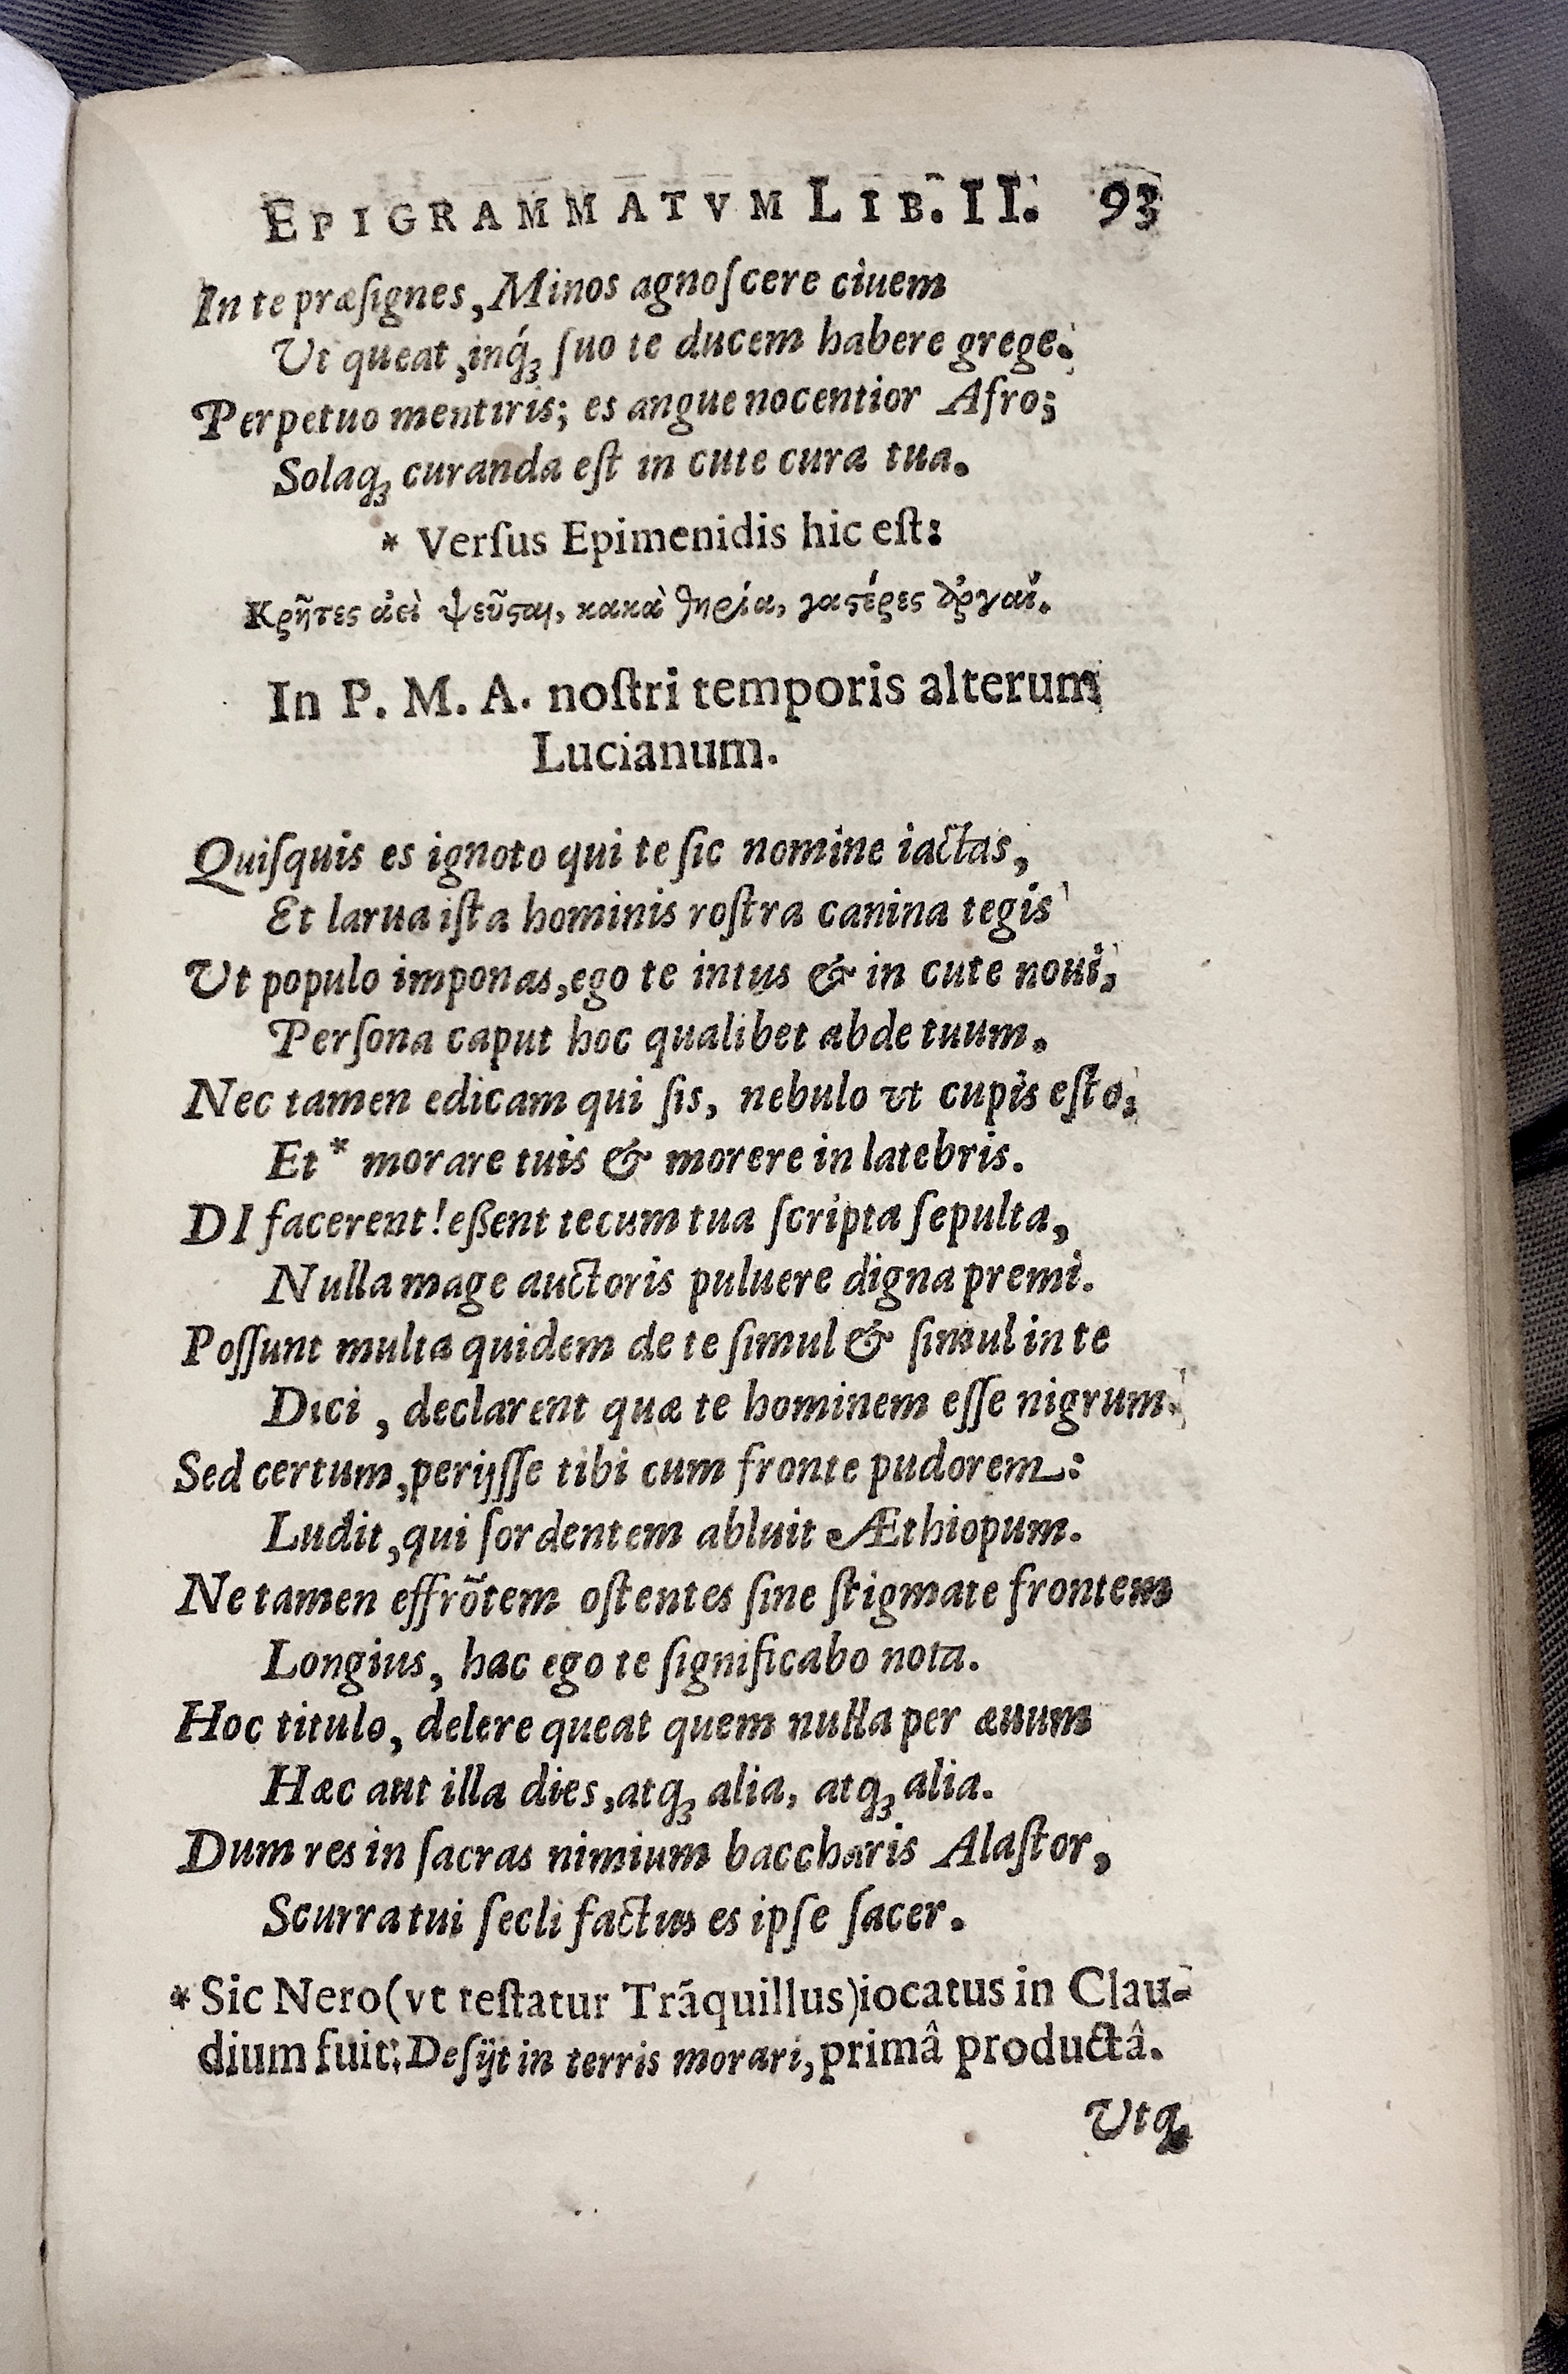 EPIGRAMMATVM LIB. II. 93
In te præſignes, Minos agnoſcere ciuem
Ut queat, inq́ꝫ ſuo te ducem habere grege.
Perpetuo mentiris; es angue nocentior Afro;
Solaqꝫ curanda eſt in cute cura tua.
* Verſus Epimenidis hic eſt:
Κρῆτες ἀεὶ ψεῦσται, κακὰ θηρία, γαστέρες ἀργαί.
In P. M. A. noſtri temporis alterum
Lucianum.
Quiſquis es ignoto qui te ſic nomine iactas,
Et larua iſta hominis roſtra canina tegis
Ut populo imponas, ego te intus & in cute noui,
Perſona caput hoc qualibet abde tuum.
Nec tamen edicam qui ſis, nebulo vt cupis eſto,
Et * morare tuis & morere in latebris.
DI facerent! eßent tecum tua ſcripta ſepulta,
Nulla mage auctoris puluere digna premi.
Poſſunt multa quidem de te ſimul & ſimul in te
Dici, declarent quæ te hominem eſſe nigrum.
Sed certum, perijſſe tibi cum fronte pudorem:
Ludit, qui ſordentem abluit Æthiopum.
Ne tamen effrõtem oſtentes ſine ſtigmate frontem
Longius, hac ego te ſignificabo nota.
Hoc titulo, delere queat quem nulla per æuum
Hæc aut illa dies, atqꝫ alia, atqꝫ alia.
Dum res in ſacras nimium baccharis Alaſtor,
Scurra tui ſecli factus es ipſe ſacer.
* Sic Nero (vt teſtatur Trãquillus) iocatus in Clau-
dium fuit: Deſijt in terris morari, primâ productâ.
Utqꝫ